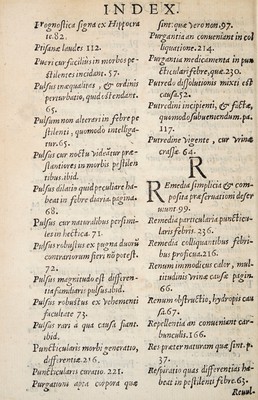 INDEX.
Prognostica signa ex Hippocra
te.82.
Ptisanæ laudes 112.
Pueri cur faciliùs in morbos pe-
stilentes incidant. 57.
Pulsus inæqualitas, & ordinis
perturbatio, quid ostendant.
65.
Pulsum non alterari in febre pe
stilenti, quomodo intelliga-
tur.65.
Pulsus cur noctu videãtur præ-
stantiores in morbis pestilen
tibus.ibid.
Pulsus dilatio quid peculiare ha-
beat in febre diaria. pagina.
68.
Pulsus cur naturalibus persi-
miles in hectica. 71.
Pulsus robustus ex pugna duorũ
contrariorum fieri nõ potest.
72.
Pulsus magnitudo est differen-
tia familiaris pulsus.ibid.
Pulsus robustus ex vehementi
facultate 73.
Pulsus rari à qua causa fiant.
ibid.
Puncticularis morbi generatio,
differentiæ.216.
Puncticularis curatio. 221.
Purgationi apta corpora quæ
sint: quæ verò non.97.
Purgantia an conueniant in col
liquatione.214.
Purgantia medicamenta in pun-
cticulari febre, quæ.230.
Putredo dissolutionis mixti est
causa.52.
Putredini incipienti, & factæ,
quomodo subueniendum. pa.
117.
Putredine vigente, cur vrinæ
crassæ. 64.
R
REmedia simplicia & com-
posita præseruationi deser
uiunt 99.
Remedia particularia puncticu-
laris febris. 236.
Remedia colliquantibus febri-
bus proficua.216.
Renum immodicus calor, mul-
titudinis vrinæ causa. pagin
66.
Renum obstructio, hydropis cau
sa.67.
Repellentia an conueniant car-
bunculis.166.
Res præter naturam quæ sint. p.
37.
Respiratio quas differentias ha-
beat in pestilenti febre.63.
Reuul.